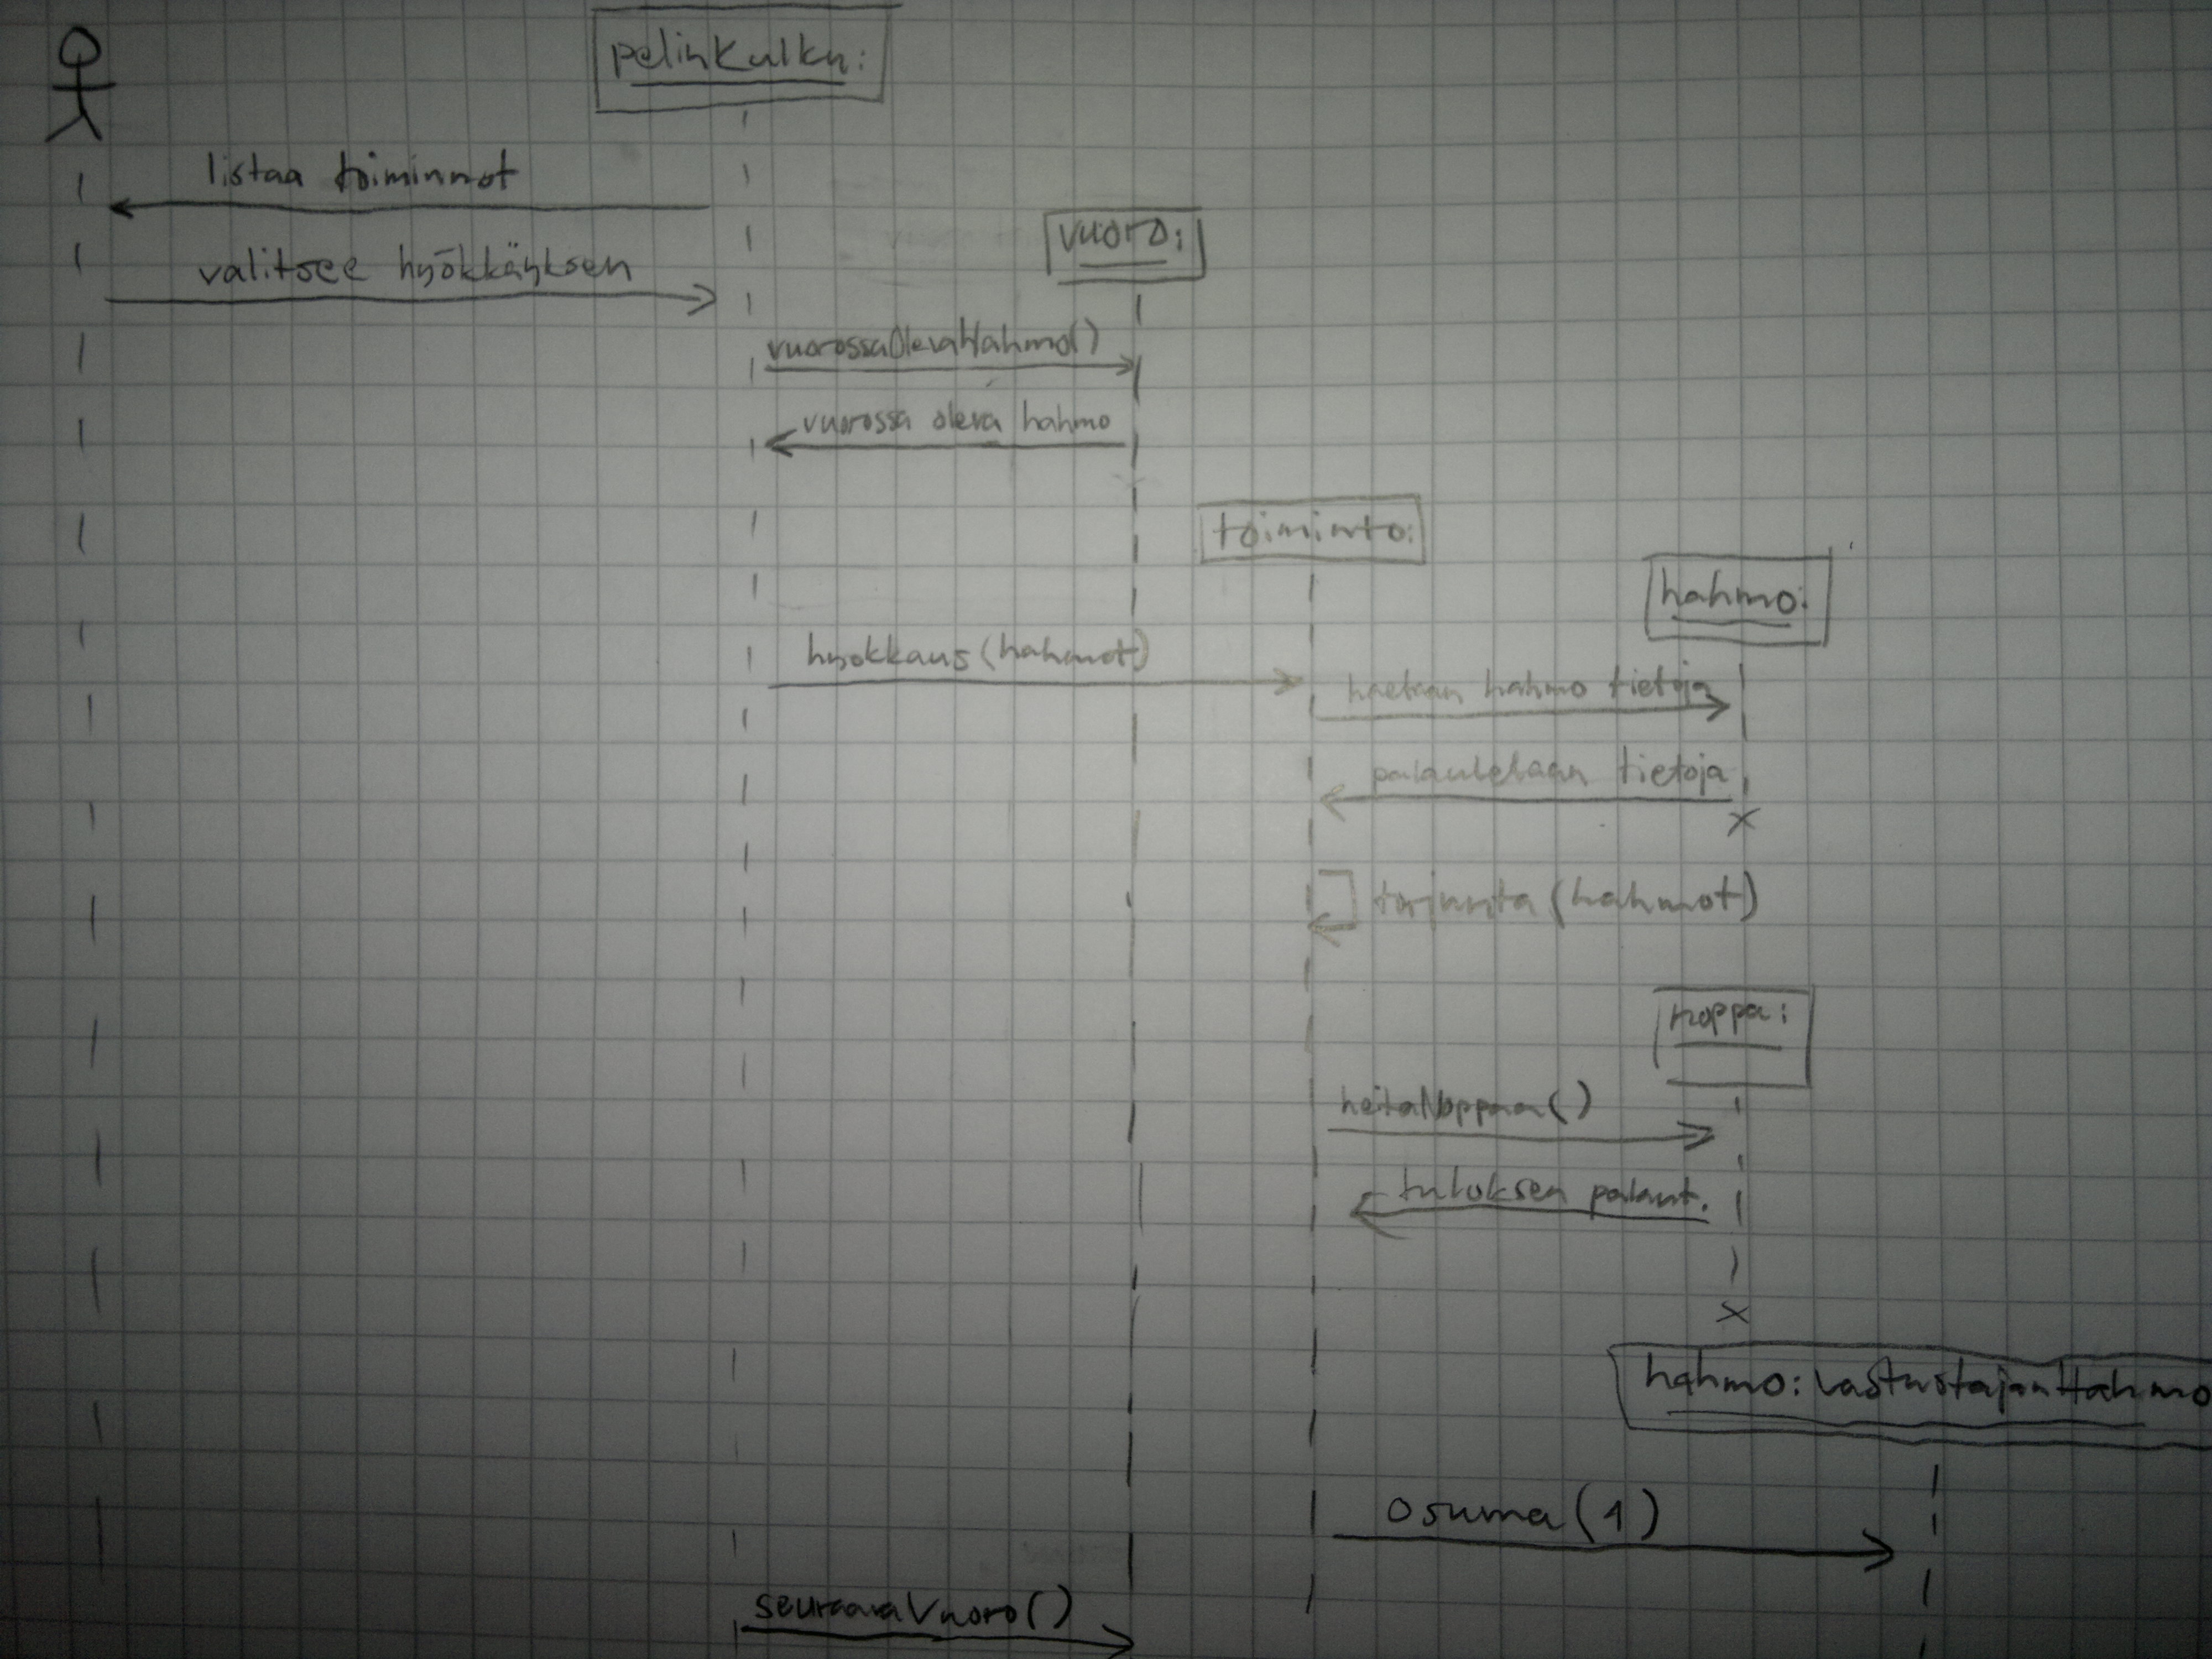 pelinKulku:
listaa toiminnot
vuoro:
valitsee hyökkäyksen
vuorossaOlevaHahmo()
vuorossa oleva hahmo
toiminto:
hahmo:
hyokkaus(hahmot)
haetaan hahmo tietoja
palautetaan tietoja
x
torjunta(hahmot)
noppa:
heitaNoppaa()
tuloksen palaut.
x
hahmo:vastustajanHahmo
osuma(1)
seuraavaVuoro()